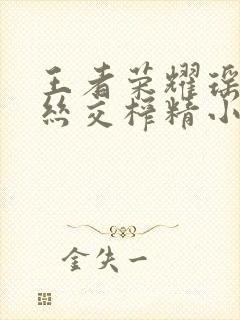 王者荣耀瑶
丝交榨精小
金失一